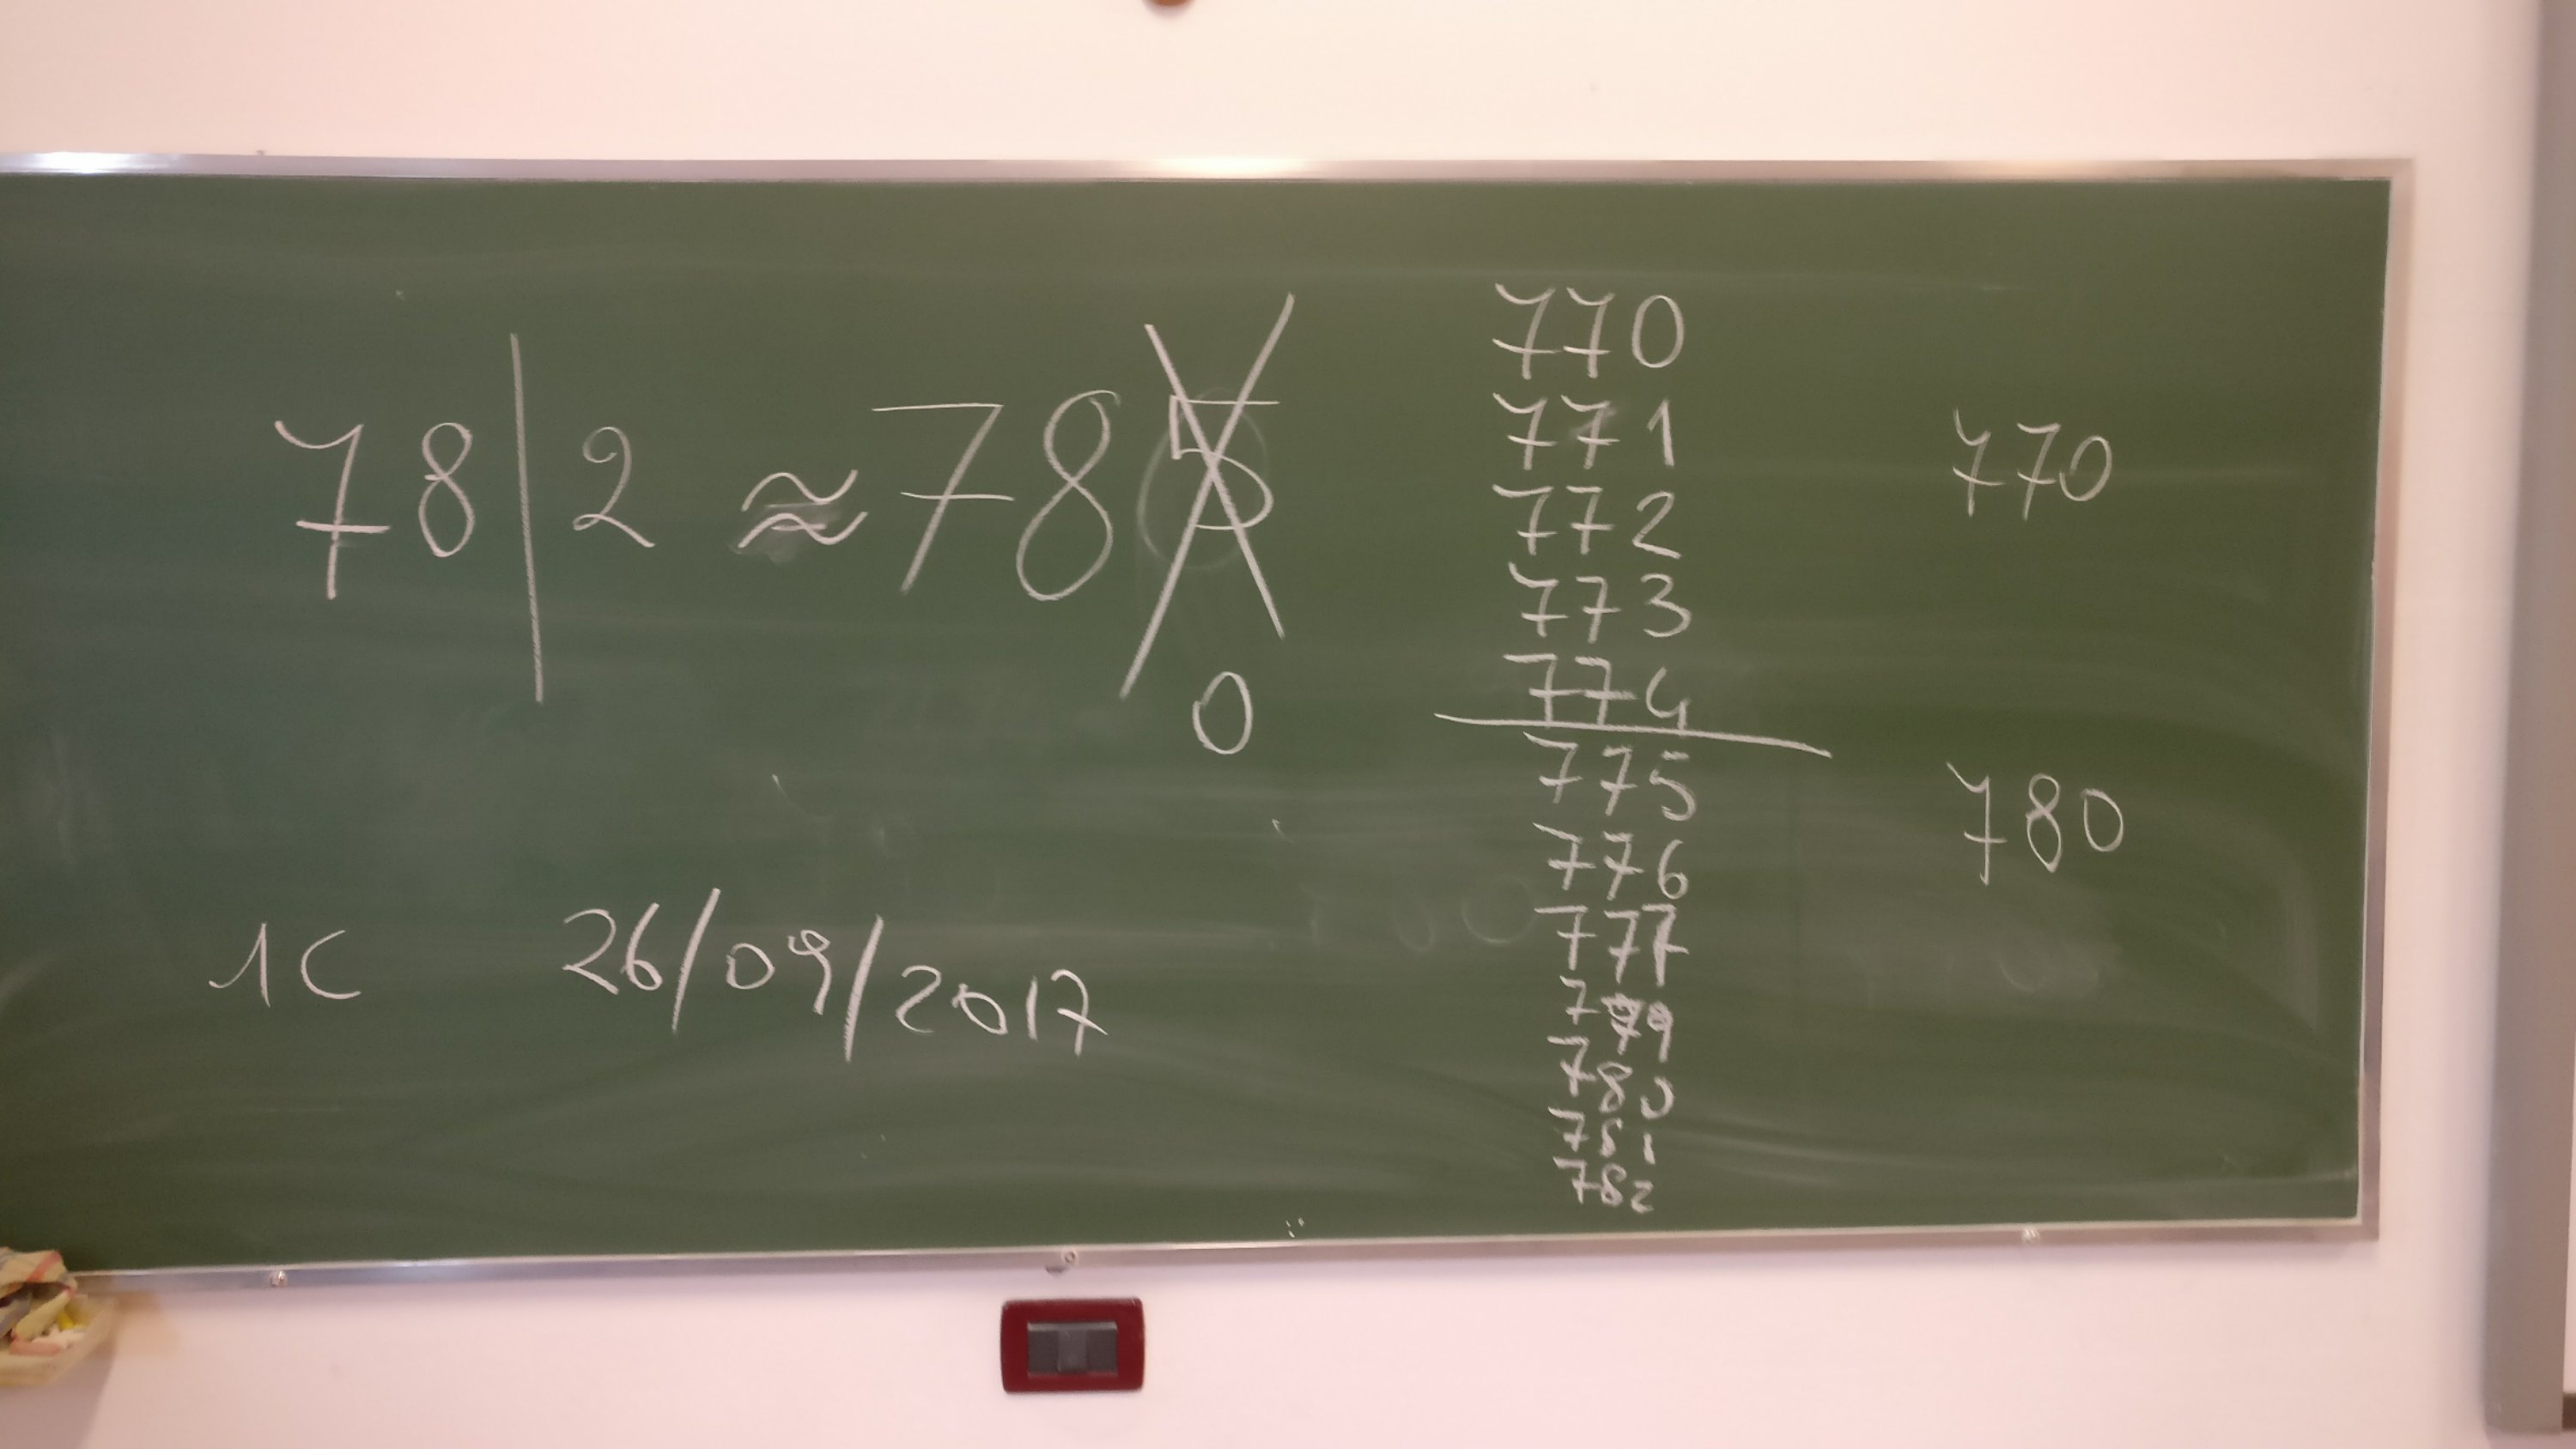 78|2 ≈ 785
0
1C 26/09/2017
770
771
772
773
774
775
776
777
779
780
781
782
770
780